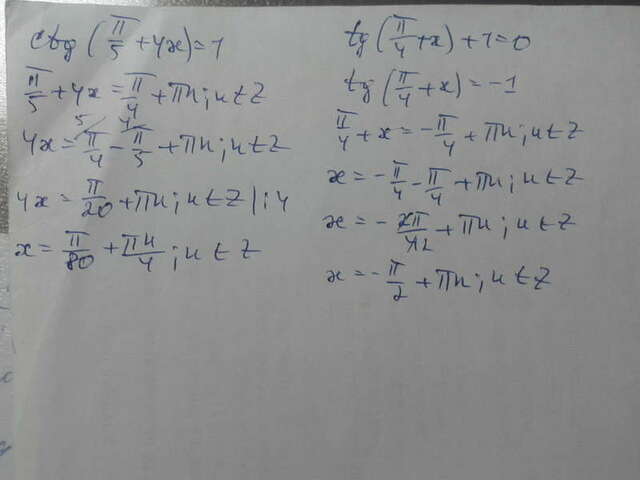 ctg(π/5 + 4x) = 1
π/5 + 4x = π/4 + πn; n ∈ Z
4x = π/4 - π/5 + πn; n ∈ Z
4x = π/20 + πn; n ∈ Z |:4
x = π/80 + πn/4; n ∈ Z
tg(π/4 + x) + 1 = 0
tg(π/4 + x) = -1
π/4 + x = -π/4 + πn; n ∈ Z
x = -π/4 - π/4 + πn; n ∈ Z
x = -2π/4 2 + πn; n ∈ Z
x = -π/2 + πn; n ∈ Z